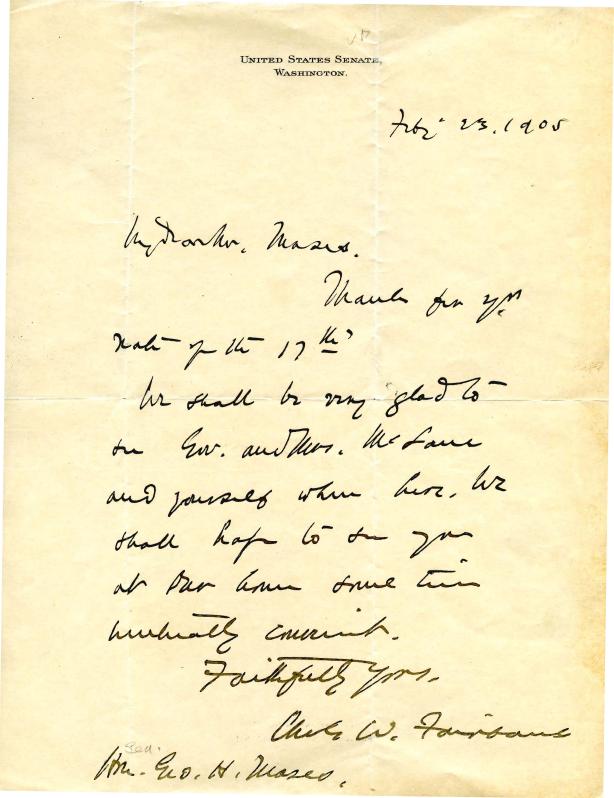 UNITED STATES SENATE,
WASHINGTON.
Feby 23, 1905
My dear Mr. Moses.
Thanks for yr
note of the 17th
We shall be very glad to
see Gov. and Mrs. McLane
and yourself when here. We
shall hope to see you
at our home some time
mutually convenient.
Faithfully yours.
Chas W. Fairbanks
Geo.
Hon. Geo. H. Moses.